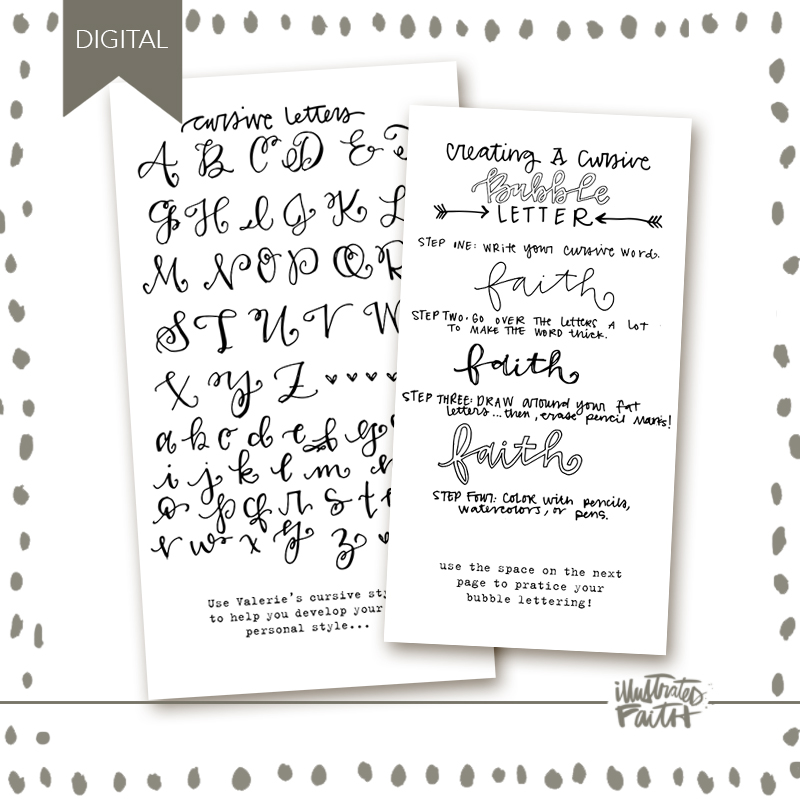 DIGITAL
cursive letters
A B C D E
G H I J K L
M N O P Q R
S T U V W
X Y Z
a b c d e f g
i j k l m n
o p q r s t
v w x y z
Use Valerie's cursive
to help you develop your
personal style...
creating A cursive
Bubble
LETTER
STEP ONE: WRITE your cursive word.
faith
STEP TWO: GO OVER THE letters A LOT
TO MAKE THE WORD thick.
faith
STEP THREE: DRAW around your fat
letters...then, erase pencil marks!
faith
STEP FOUR: COLOR with pencils,
watercolors, or pens.
use the space on the next
page to pratice your
bubble lettering!
illustrated
FAITH